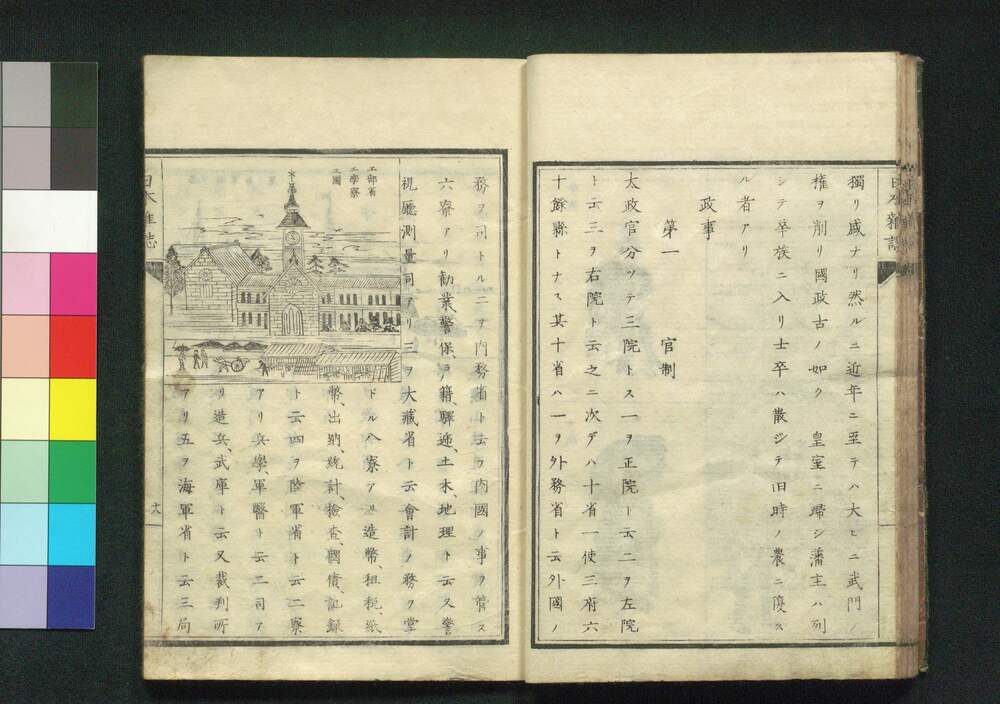 獨リ盛ナリ然ルニ近年ニ至テハ大ヒニ武門ノ
権ヲ削リ國政古ノ如ク 皇室ニ歸シ藩主ハ列
シテ華族ニ入リ士卒ハ散ジテ旧時ノ農ニ復ス
ル者アリ
政事
第一 官制
太政官分ツテ三院トス一ヲ正院ト云二ヲ左院
ト云三ヲ右院ト云之ニ次デハ十省一使三府六
十餘縣トナス其十省ハ一ヲ外務省ト云外國ノ
務ヲ司トル二ヲ内務省ト云フ内國ノ事ヲ管ス
六寮アリ勧業、警保、戸籍、驛逓、土木、地理ト云又警
視廳測量司アリ三ヲ大藏省ト云會計ノ務ヲ掌
工部省
工學寮
之圖
ドル八寮アリ造幣、租税、紙
幣、出納、統計、檢査、國債、記録
ト云四ヲ陸軍省ト云二寮
アリ兵學、軍醫ト云二司ア
リ造兵、武庫ト云又裁判所
アリ五ヲ海軍省ト云三局
日本雜誌